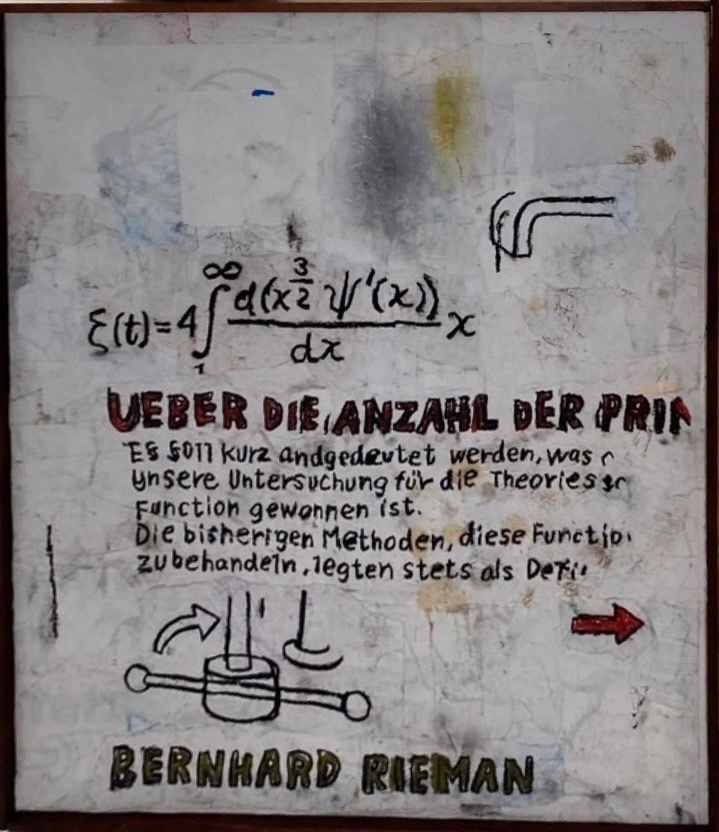 ξ(t)=4∫₁^∞ d(x^(3/2) ψ'(x))/dx x
UEBER DIE ANZAHL DER PRIM
Es soll kurz andgedeutet werden, was
unsere Untersuchung für die Theorie
Function gewonnen ist.
Die bisherigen Methoden, diese Functio
zubehandeln, legten stets als
BERNHARD RIEMAN